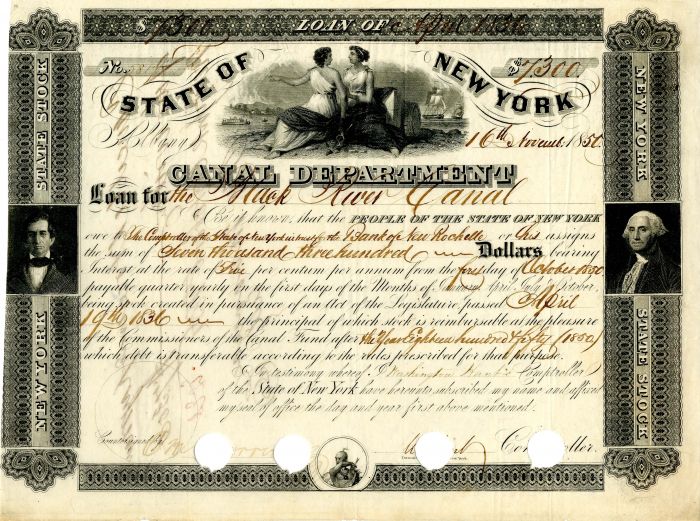 $7,300. LOAN OF April 1836
No.
STATE OF NEW YORK
$7,300.
Albany 16th Novemb. 1850.
CANAL DEPARTMENT
Loan for the Black River Canal
Be it known, that the PEOPLE OF THE STATE OF NEW YORK
owe to The Comptroller of the State of New York in trust for the Bank of New Rochelle or his assigns
the sum of Seven thousand three hundred Dollars bearing
Interest at the rate of Five per centum per annum from the first day of October 1850
payable quarter yearly on the first days of the Months of January, April, July & October,
being stock created in pursuance of an Act of the Legislature, passed April
19th 1836 the principal of which stock is reimbursable at the pleasure
of the Commissioners of the Canal Fund after the Year Eighteen hundred fifty (1850)
which debt is transferable according to the rules prescribed for that purpose.
In testimony whereof I, Washington Hunt Comptroller
of the State of New York have hereunto subscribed my name and affixed
my seal of office the day and year first above mentioned.
Countersigned by
Comptroller.
STATE STOCK
NEW YORK
NEW YORK
STATE STOCK